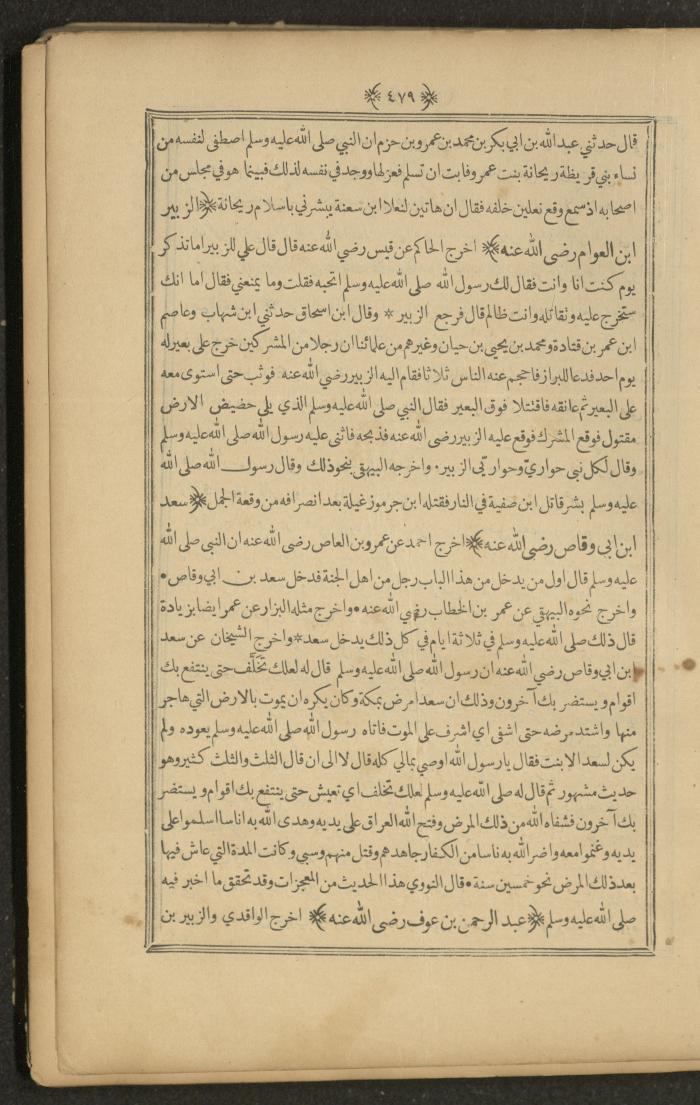 ﴿ ٤٧٩ ﴾
قال حدثني عبد الله بن ابي بكر بن محمد بن عمرو بن حزم ان النبي صلى الله عليه وسلم اصطفى لنفسه من
نساء بني قريظة ريحانة بنت عمرو فابت ان تسلم فعزلها ووجد في نفسه لذلك فبينما هو في مجلس من
اصحابه اذ سمع وقع نعلين خلفه فقال ان هاتين لنعلا ابن سعنة يبشرني باسلام ريحانة ﴿ الزبير
ابن العوام رضى الله عنه ﴾ اخرج الحاكم عن قيس رضي الله عنه قال قال علي للزبير اما تذكر
يوم كنت انا وانت فقال لك رسول الله صلى الله عليه وسلم اتحبه فقلت وما يمنعني فقال اما انك
ستخرج عليه وتقاتله وانت ظالم قال فرجع الزبير * وقال ابن اسحاق حدثني ابن شهاب وعاصم
ابن عمر بن قتادة ومحمد بن يحيى بن حيان وغيرهم من علمائنا ان رجلا من المشركين خرج على بعير له
يوم احد فدعا للبراز فاحجم عنه الناس ثلاثا فقام اليه الزبير رضي الله عنه فوثب حتى استوى معه
على البعير ثم عانقه فاقتتلا فوق البعير فقال النبي صلى الله عليه وسلم الذي يلي حضيض الارض
مقتول فوقع المشرك فوقع عليه الزبير رضي الله عنه فذبحه فاثنى عليه رسول الله صلى الله عليه وسلم
وقال لكل نبى حواريّ وحواريّي الزبير • واخرجه البيهقي بنحو ذلك وقال رسول الله صلى الله
عليه وسلم بشر قاتل ابن صفية في النار فقتله ابن جرموز غيلة بعد انصرافه من وقعة الجمل ﴿ سعد
ابن ابي وقاص رضى الله عنه ﴾ اخرج احمد عن عمرو بن العاص رضى الله عنه ان النبي صلى الله
عليه وسلم قال اول من يدخل من هذا الباب رجل من اهل الجنة فدخل سعد بن ابي وقاص •
واخرج نحوه البيهقي عن عمر بن الخطاب رضي الله عنه • واخرج مثله البزار عن عمر ايضا بزيادة
قال ذلك صلى الله عليه وسلم في ثلاثة ايام في كل ذلك يدخل سعد * واخرج الشيخان عن سعد
ابن ابي وقاص رضي الله عنه ان رسول الله صلى الله عليه وسلم قال له لعلك تَخَلَّف حتى ينتفع بك
اقوام ويستضر بك آخرون وذلك ان سعدا مرض بمكة وكان يكره ان يموت بالارض التي هاجر
منها واشتد مرضه حتى اشفى اي اشرف على الموت فاتاه رسول الله صلى الله عليه وسلم يعوده ولم
يكن لسعد الا بنت فقال يا رسول الله اوصي بمالي كله قال لا الى ان قال الثلث والثلث كثير وهو
حديث مشهور ثم قال له صلى الله عليه وسلم لعلك تخلف اي تعيش حتى ينتفع بك اقوام ويستضر
بك آخرون فشفاه الله من ذلك المرض وفتح الله العراق على يديه وهدى الله به اناسا اسلموا على
يديه وغنموا معه واضر الله به ناسا من الكفار جاهدهم وقتل منهم وسبى وكانت المدة التي عاش فيها
بعد ذلك المرض نحو خمسين سنة • قال النووي هذا الحديث من المعجزات وقد تحقق ما اخبر فيه
صلى الله عليه وسلم ﴿ عبد الرحمن بن عوف رضى الله عنه ﴾ اخرج الواقدي والزبير بن